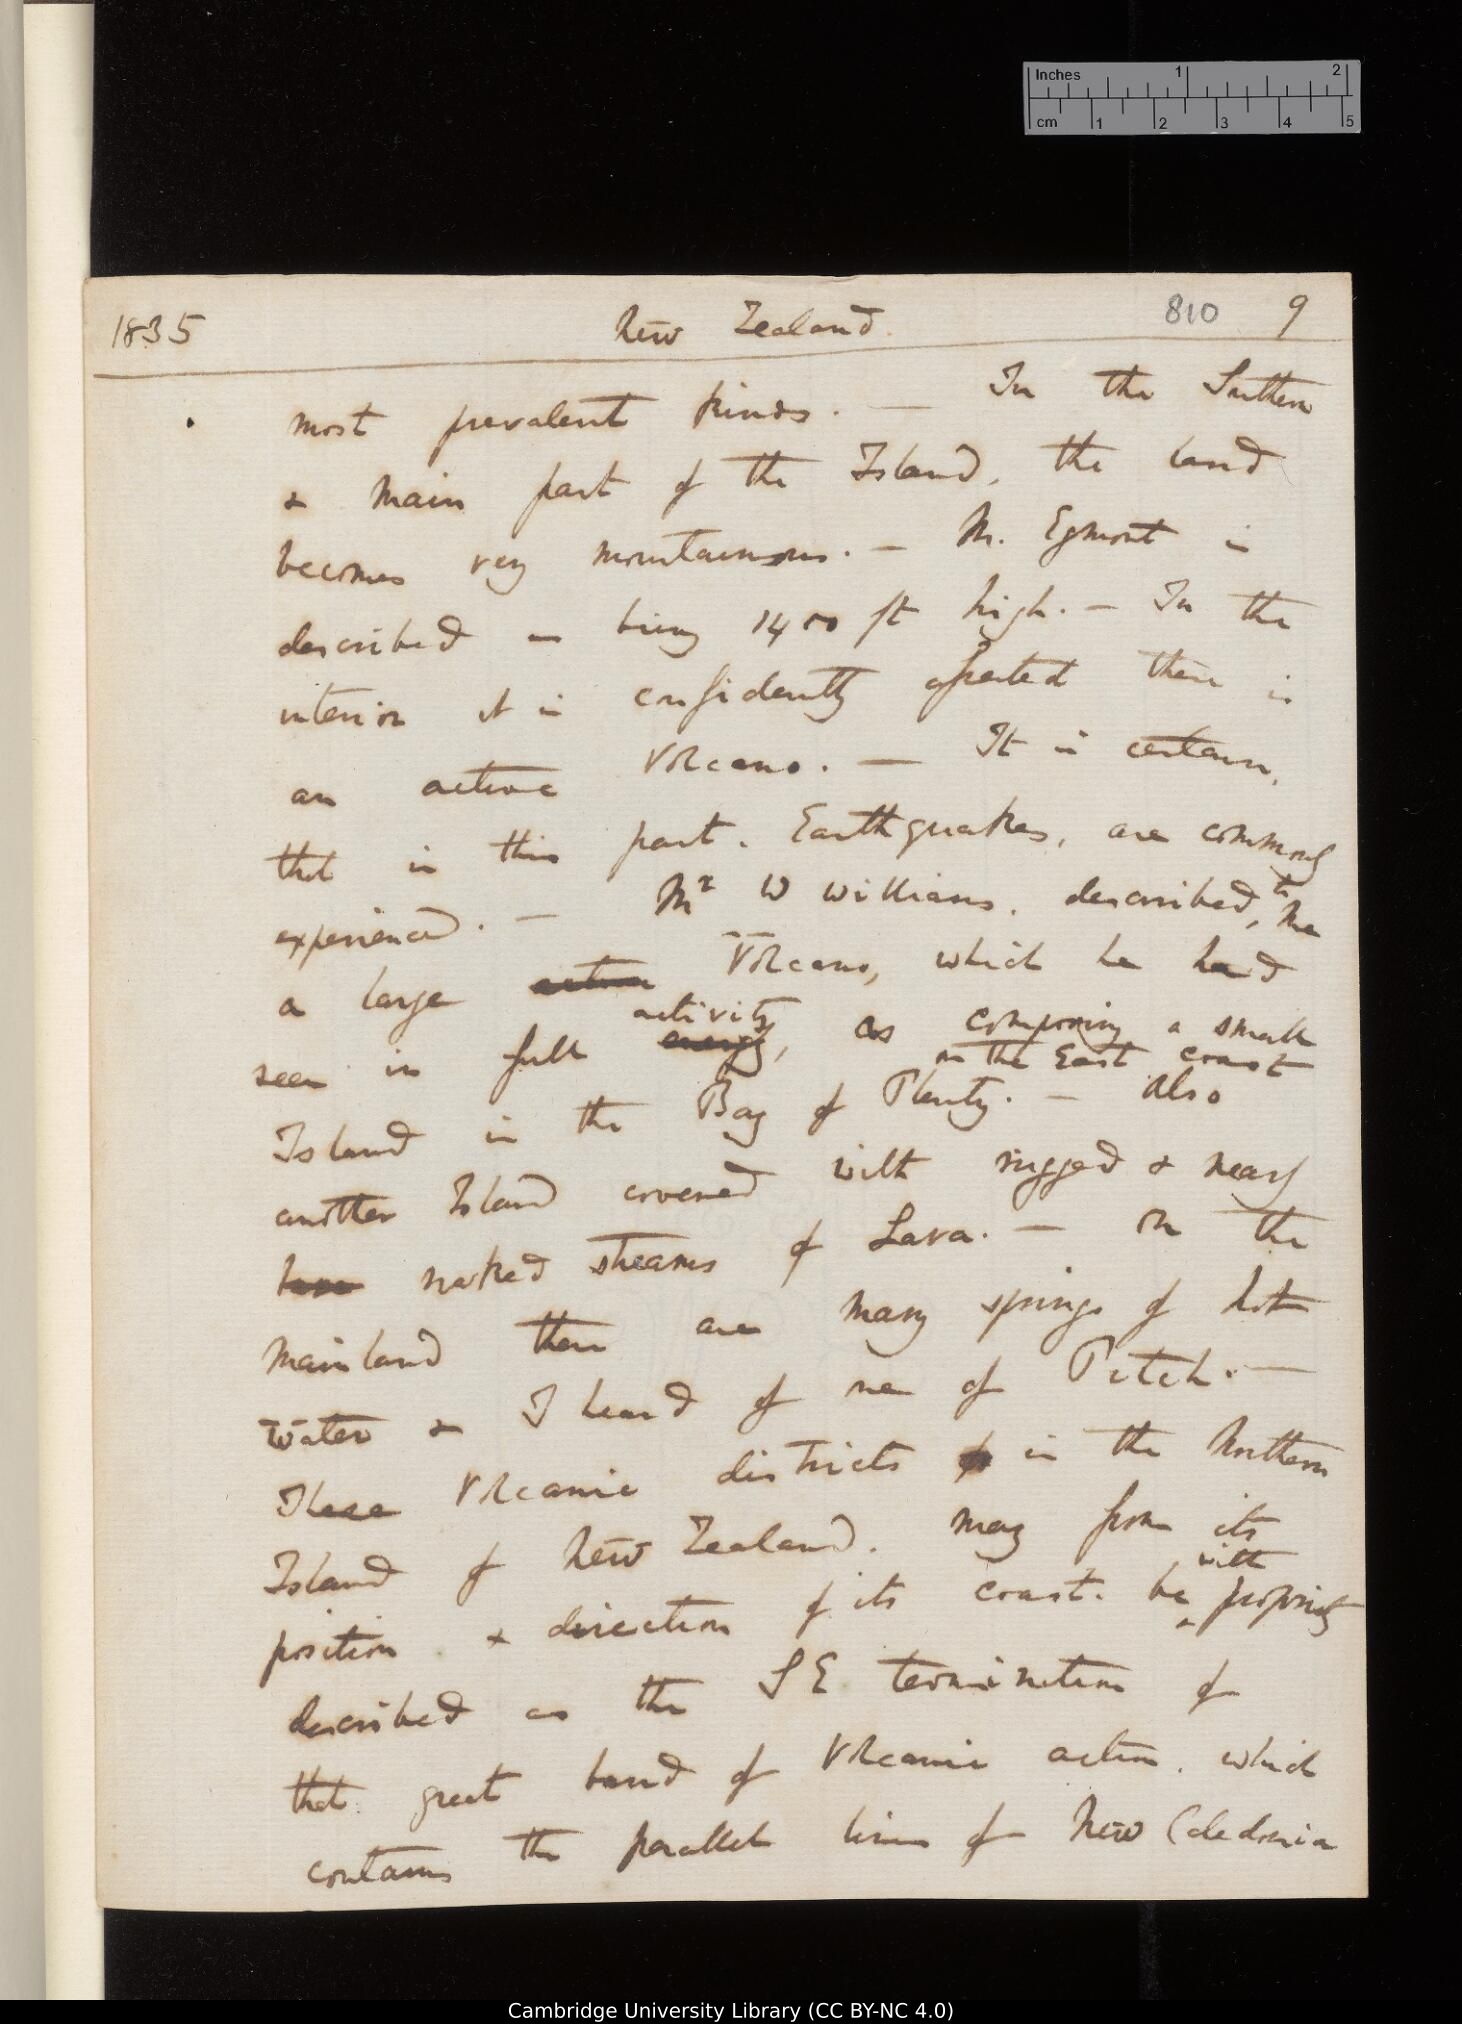 Inches 1 2
cm 1 2 3 4 5
1835 New Zealand. 810 9
most prevalent kinds. — In the Southern
& main part of the Island, the land
becomes very mountainous. — M. Egmont is
described as being 1400 ft high. — In the
interior it is confidently asserted there is
an active Volcano. — It is certain,
that in this part, Earthquakes, are commonly
experienced. — Mr W Williams, described, to me
a large active Volcano, which he had
seen in full energy, activity, as composing a small
Island in the Bay of Plenty. on the East coast — Also
another Island covered with rugged & nearly
naked streams of Lava. — On the
main land there are many springs of hot
water & I heard of one of Pitch. —
These Volcanic districts in the Northern
Island of New Zealand, may from its
position & direction of its coast. be with propriety
described as the S E termination of
that great band of Volcanic action, which
contains the parallel lines of New Caledonia
Cambridge University Library (CC BY-NC 4.0)